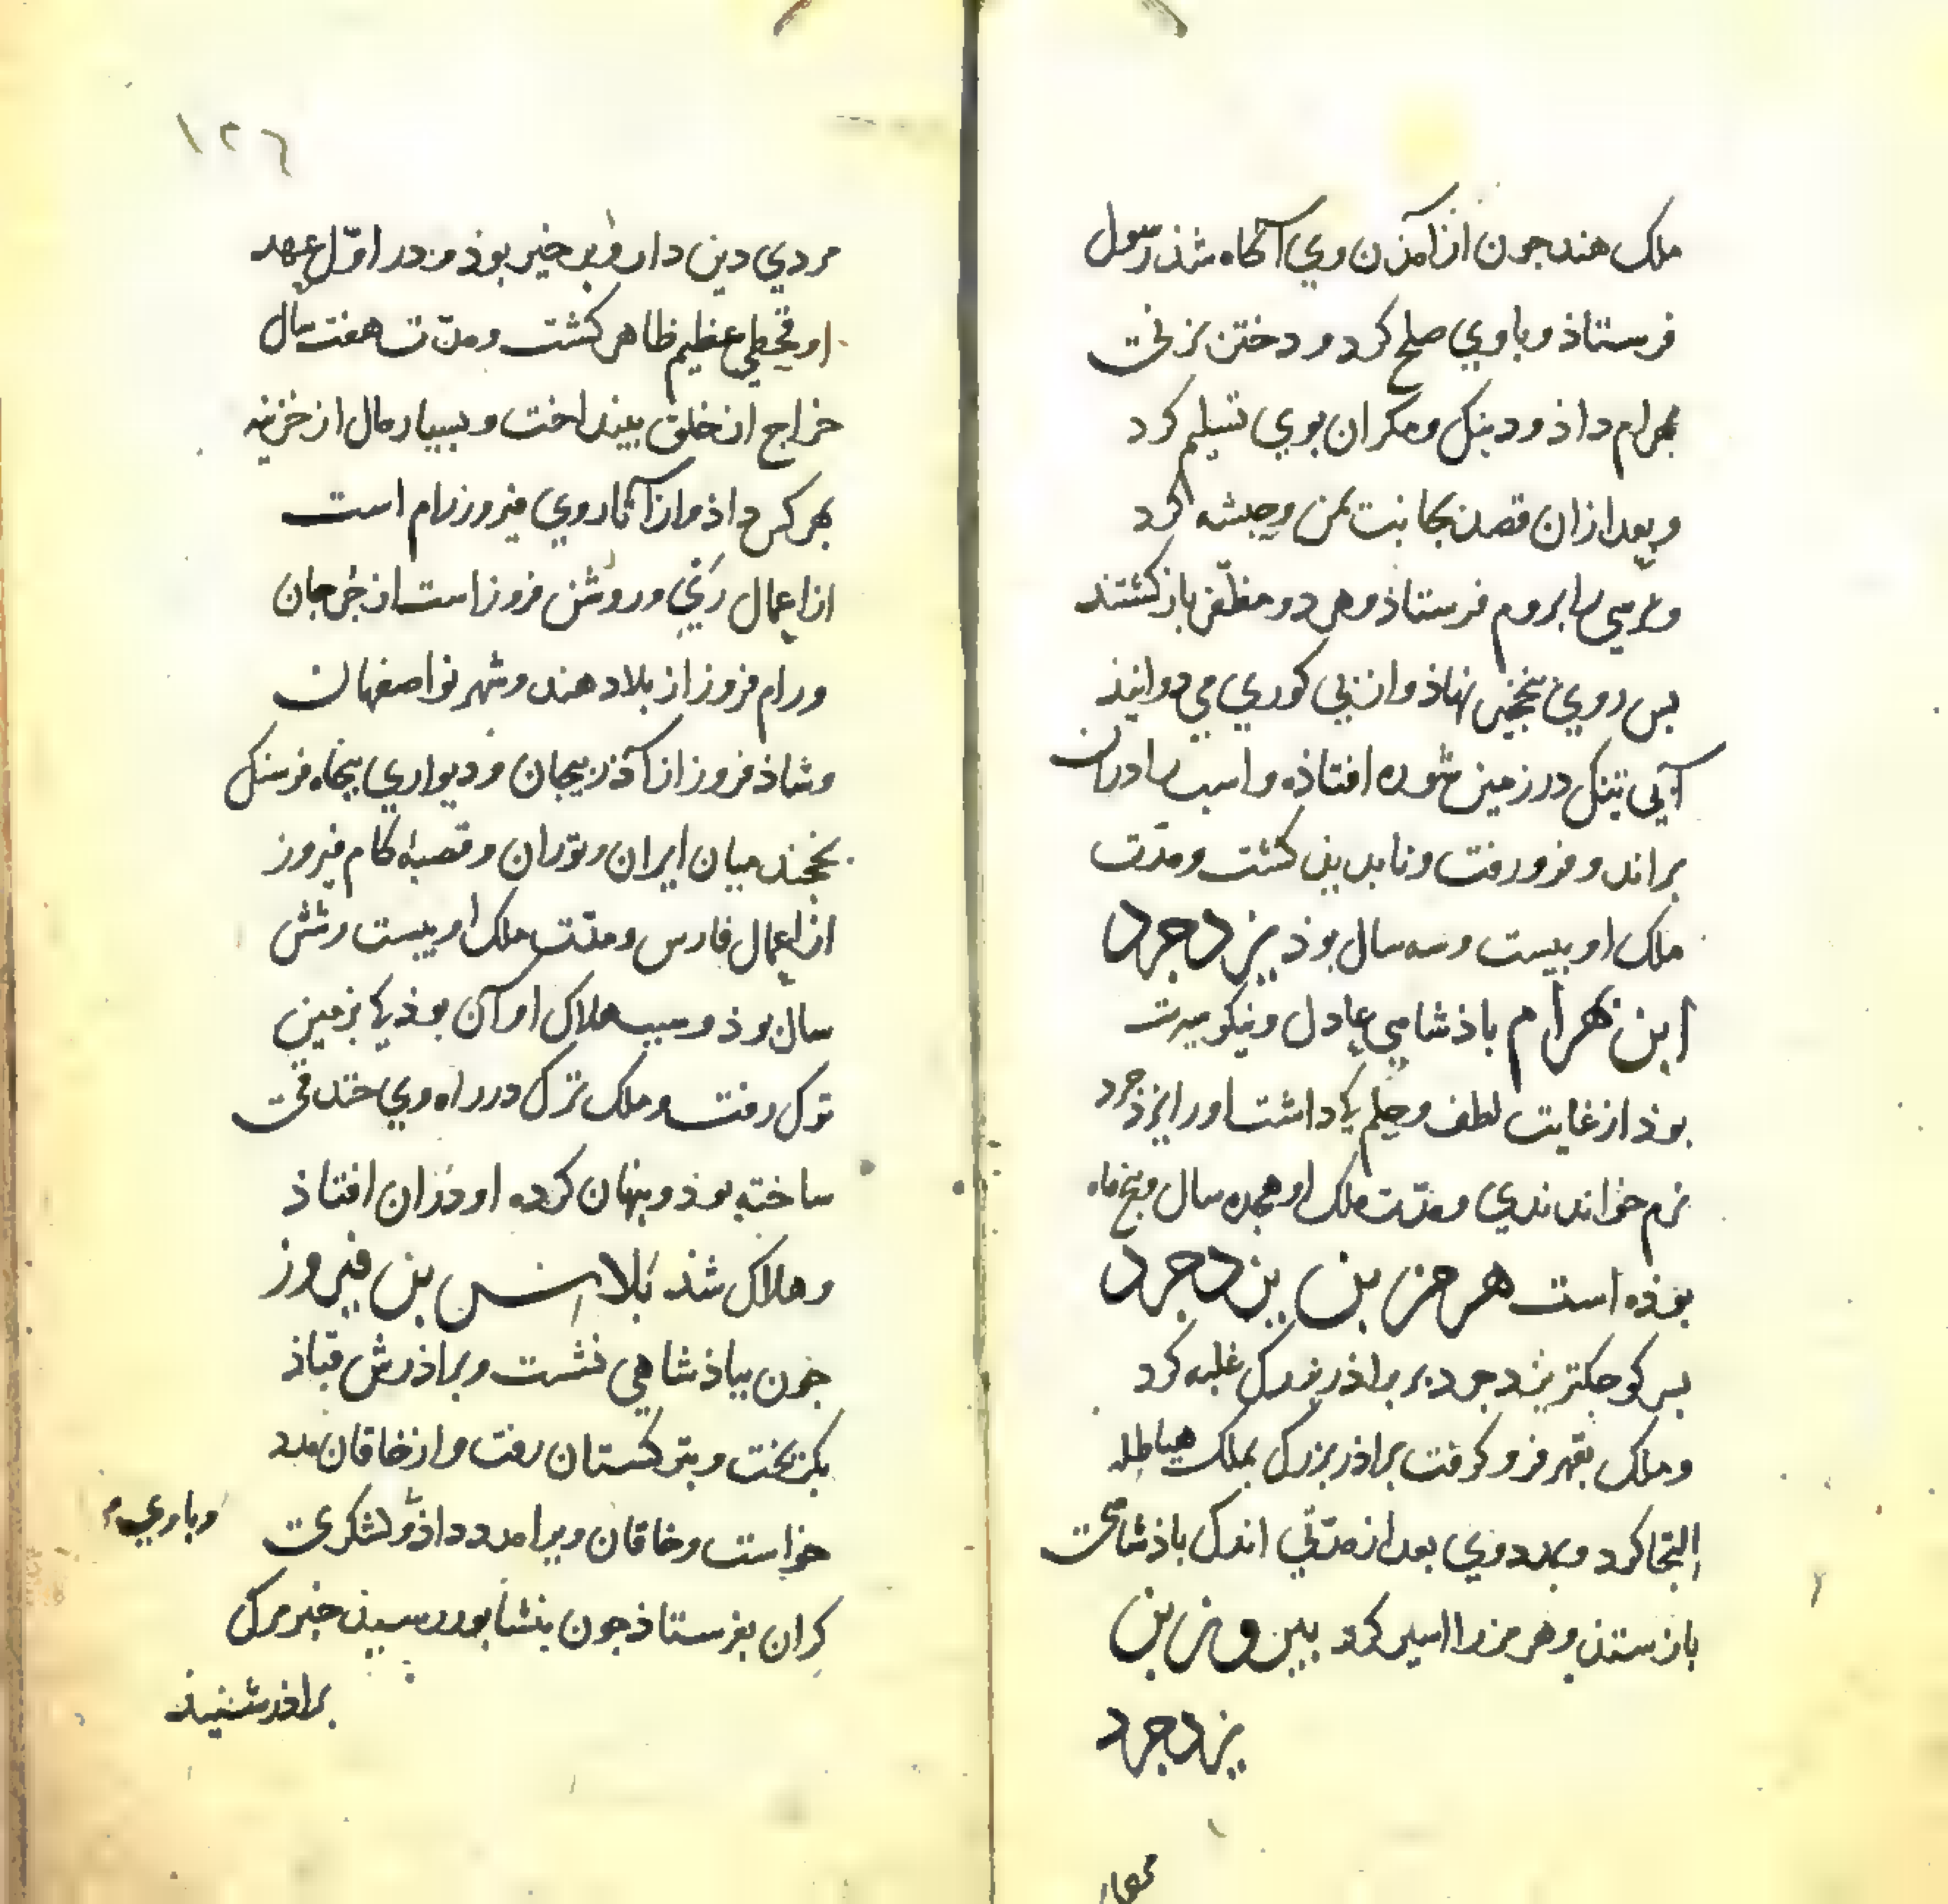 ملک هند جون از آمذن وي آگاه شذ رسول
فرستاذ و باوي صلح کرد و دختر بزنی
بهرام داذ و دیبل و مکران بوي تسلیم کرد
و بعد ازان قصد بجانب یمن و حبشه کرد
و نرسی را بروم فرستاذ و هر دو مظفر باز کشتند
بس روي بنخجیر نهاذ و از بی کوري می دوانیذ
آبی تنک در زمین شوره افتاذه و اسب را دران
براند و فرو رفت و نابدید کشت و مدت
ملک او بیست و سه سال بوذ یزدجرد
ابن بهرام باذشاهی عادل و نیکو سیرت
بوذ از غایت لطف و حلم کی داشت او را یزدجرد
نرم خواندندي و مدت ملک او هجده سال و پنج ماه
بوذه است هرمز بن یزدجرد
بسر کوجکتر یزدجرد بر براذر بزرک غلبه کرد
و ملک بقهر فرو کرفت براذر بزرک بملک هیاطله
التجا کرد و بمدد وي بعد از مدتی اندک باذشاهی
باز ستد و هرمز را اسیر کرد بیروز بن
یزدجرد
١٢٦
مردي دین دار و بر خیر بوذ و در اول عهد
او قحطی عظیم ظاهر کشت و مدت هفت سال
خراج از خلق بینداخت و بسیار مال از خزینه
بهر کس داذ و از آثار وي فیروزرام است
از اعمال ري و روشن فروز است از جرجان
و رام فروز از بلاد هند و شهر نو اصفهان
و شاذ فروز از آذربیجان و دیواري بنجاه فرسنک
بخجند میان ایران و توران و قصبهٔ کام فیروز
از اعمال فارس و مدت ملک او بیست و شش
سال بوذ و سبب هلاک او آن بوذ کی بزمین
ترک رفت و ملک ترک در راه وي خندقی
ساخته بوذ و بنهان کرده او دران افتاذ
و هلاک شذ بلاش بن فیروز
جون بباذشاهی نشست و براذرش قباذ
بکریخت و بترکستان رفت و از خاقان مدد
خواست و خاقان ویرا مدد داذ و لشکري
و باوي
کران بفرستاذ جون بنشابور رسیذ خبر مرک
براذر شنیذ